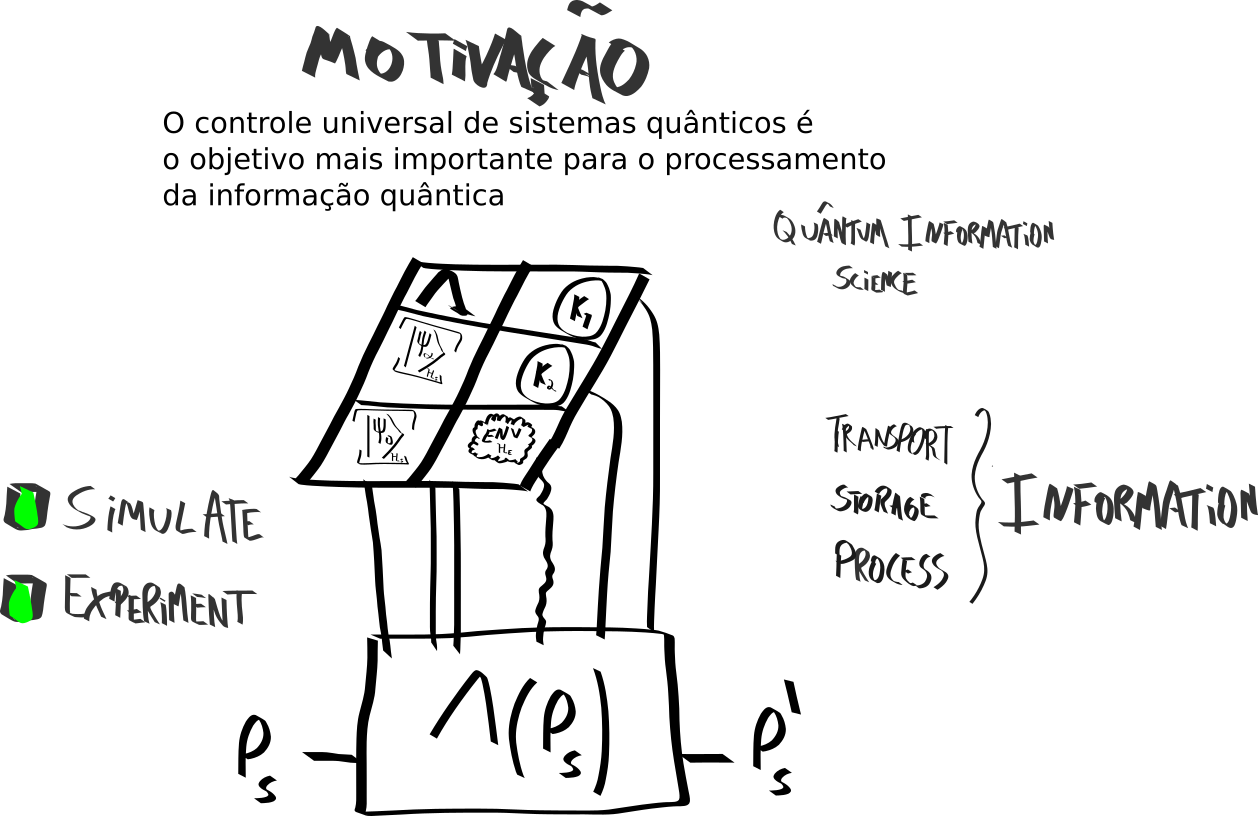 MOTiVAÇÃO
O controle universal de sistemas quânticos é
o objetivo mais importante para o processamento
da informação quântica
QUÂNTUM INFORMATiON
SCiENCE
Λ
K1
|Ψ2⟩ Hs
K2
|Ψ0⟩ Hs
ENV
HE
TRANSPORT
STORAGE
PROCESS
INFORMATiON
SiMULATE
EXPERiMENT
ρs
Λ(ρs)
ρs'